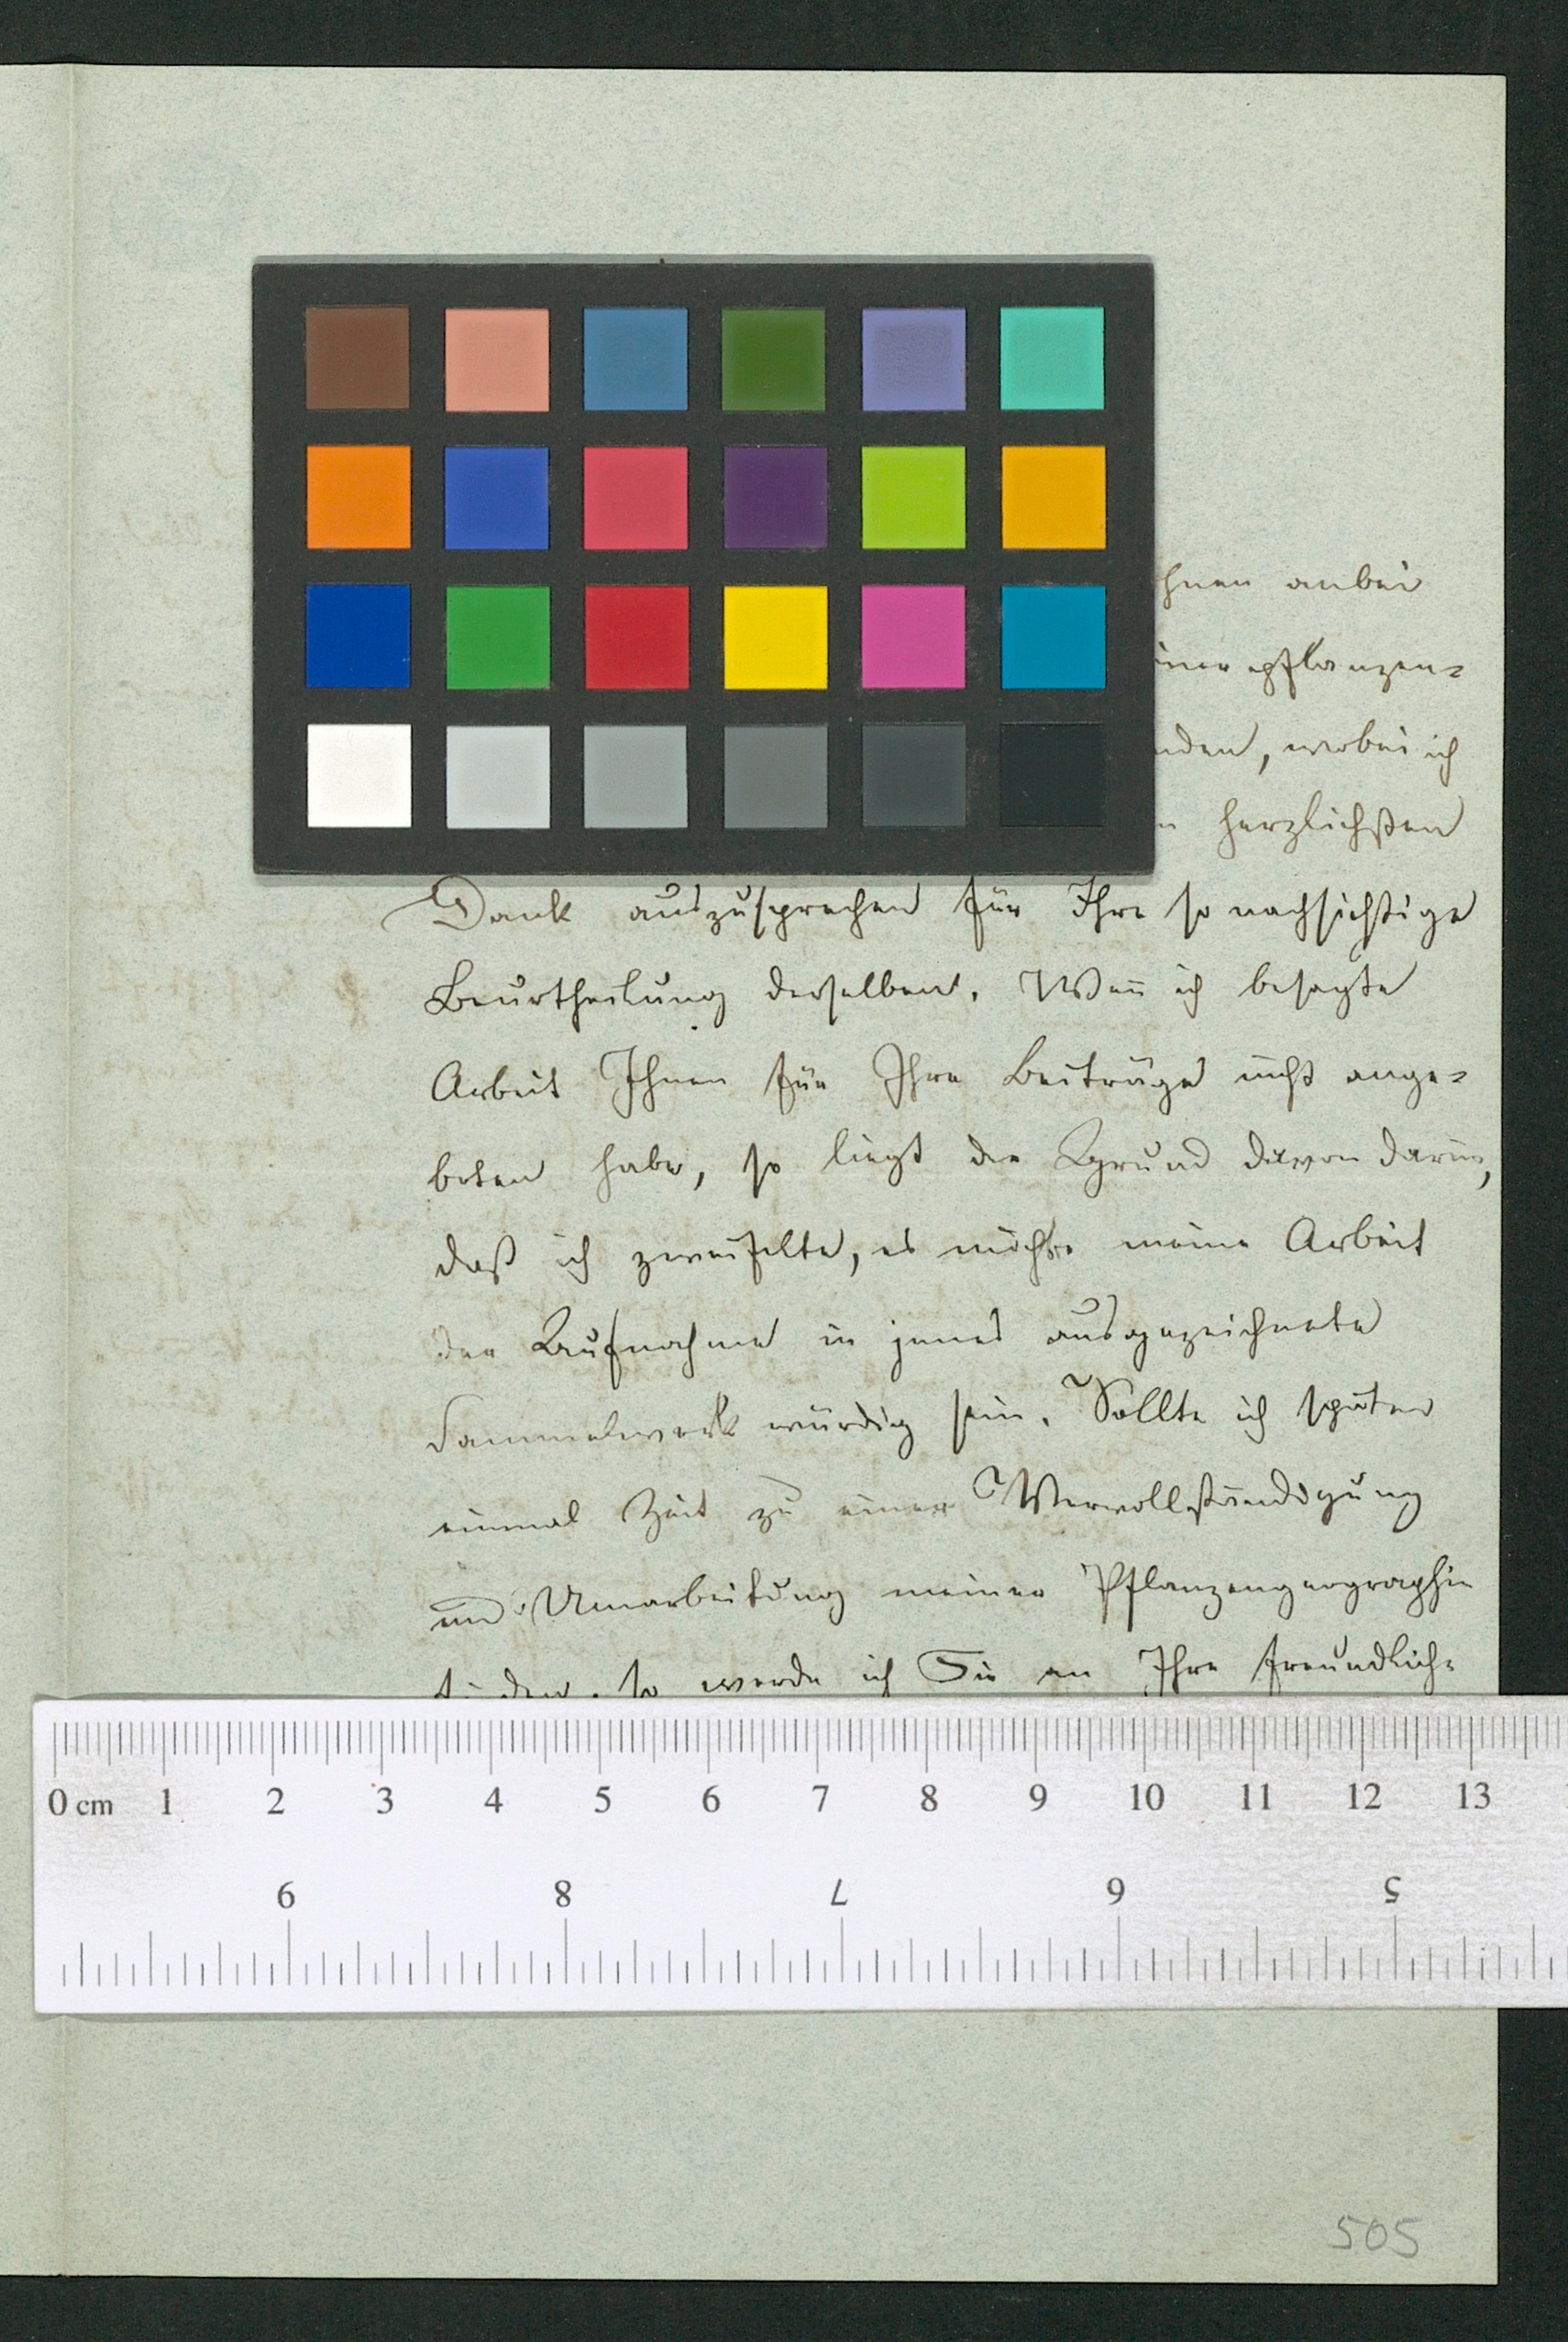 hnen anbei
iner pflanzen-
nden, wobei ich
n herzlichsten
Dank auszusprechen für Ihre so nachsichtige
Beurtheilung derselben. Weñ ich besagte
Arbeit Ihnen für Ihre Beiträge nicht ange-
boten habe, so liegt der Grund davon darin,
daß ich zweifelte, es möchte meine Arbeit
der Aufnahme in jenes ausgezeichnete
Sammelwerk würdig sein. Sollte ich später
einmal Zeit zu einer Vervollständigung
und Umarbeitung meiner Pflanzengeographie
finden, so werde ich Sie an Ihre freundliche
0 cm 1 2 3 4 5 6 7 8 9 10 11 12 13
9 8 7 6 5
505